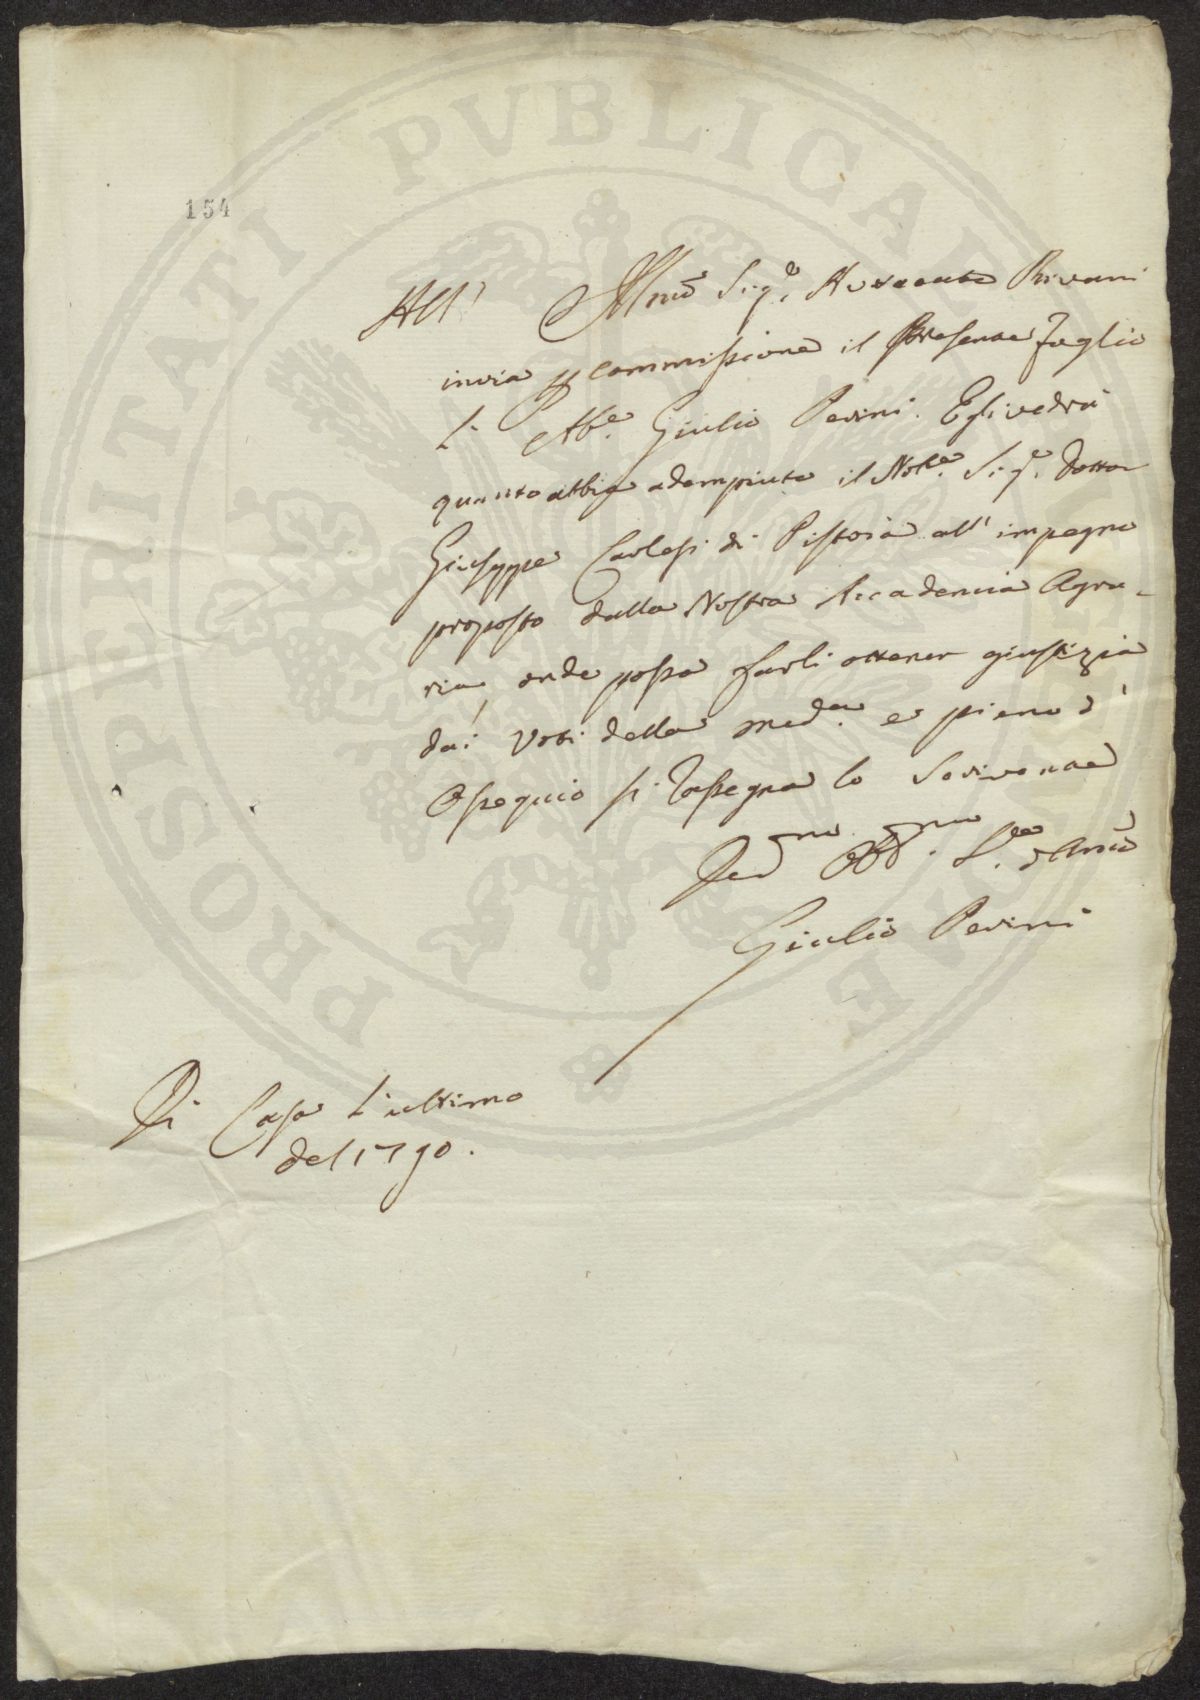 PROSPERITATI PVBLICAE AVGENDAE
154
All' Illmõ Sig.e Avvocato Rivani
invia p commissione il Presente foglio
L' Ab.e Giulio Perini. Egli vedrà
quanto abbia adempiuto il Nob.e Sig.e Dottor
Giuseppe Carlesi di Pistoia all' impegno
proposto dalla Nostra Accademia Agra-
ria, onde possa farli ottener giustizia
dai Voti della med.a e pieno d'
Ossequio si rassegna lo Scrivente
Giulio Perini
Di Casa L'ultimo
del 1790.